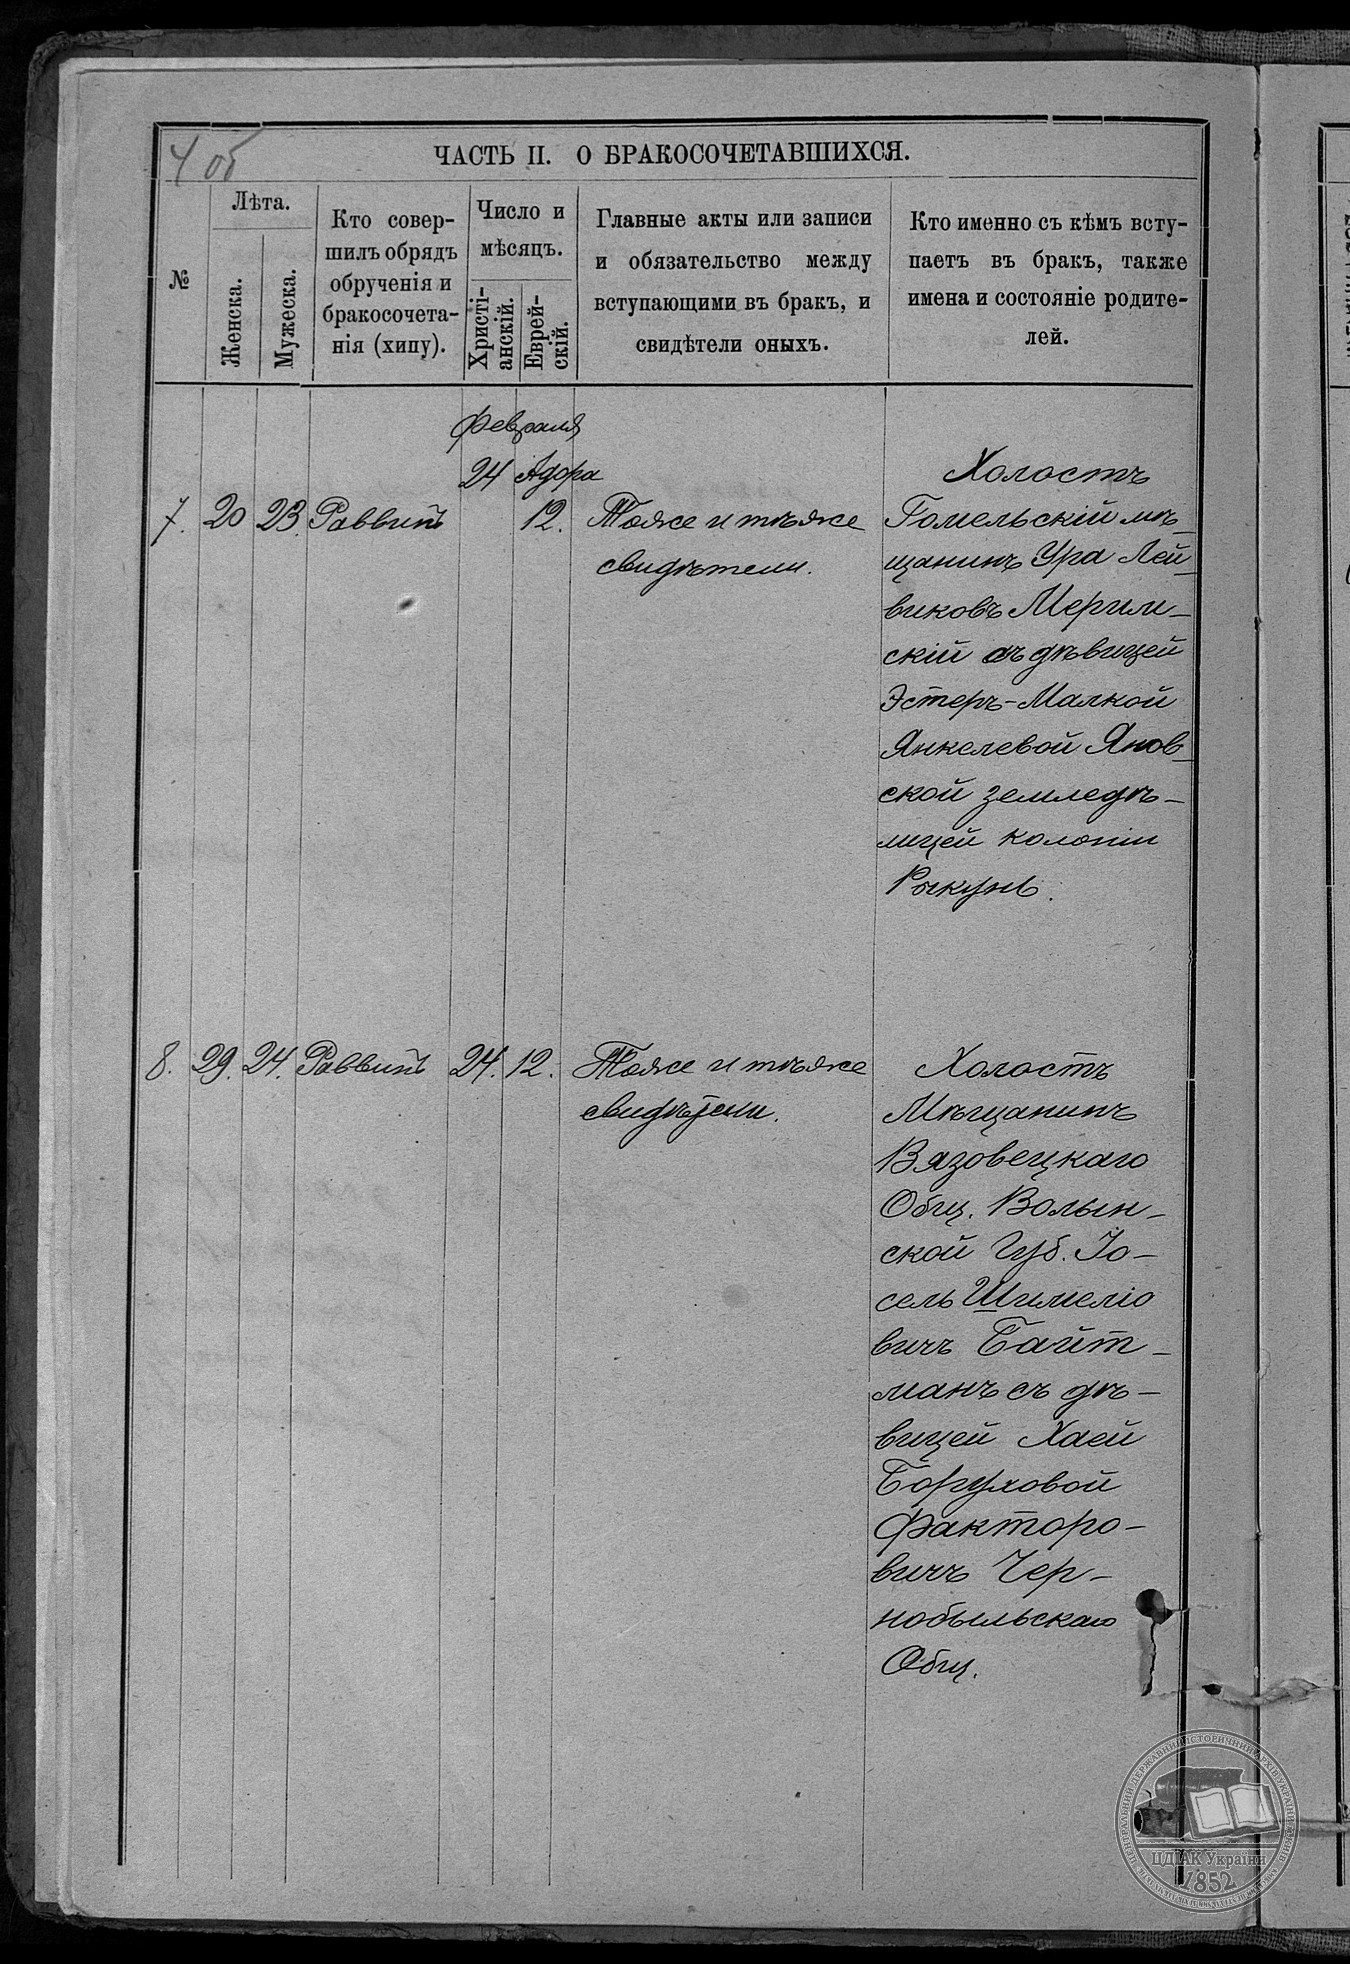 4 об
ЧАСТЬ II. О БРАКОСОЧЕТАВШИХСЯ.
№
Лѣта.
Женска.
Мужеска.
Кто совер-
шилъ обрядъ
обрученія и
бракосочета-
нія (хипу).
Число и
мѣсяцъ.
Христі-
анскій.
Еврей-
скій.
Главные акты или записи
и обязательство между
вступающими въ бракъ, и
свидѣтели оныхъ.
Кто именно съ кѣмъ всту-
паетъ въ бракъ, также
имена и состояніе родите-
лей.
Февраля
24 Адора
7. 20 23. Раввинъ 12. Тоже и тѣже
свидѣтели.
Холостъ
Гомельскій мѣ-
щанинъ Ура Лей-
виковъ Мерим-
скій съ дѣвицей
Эстеръ-Малкой
Янкелевой Янов-
ской земледѣ-
лицей колоніи
Рыкунь.
8. 29. 24. Раввинъ 24. 12. Тоже и тѣже
свидѣтели.
Холостъ
Мѣщанинъ
Вязовецкаго
Общ. Волын-
ской Губ. Іо-
сель Шимеліо
вичъ Байт-
манъ съ дѣ-
вицей Хаей
Боруховой
Факторо-
вичъ Чер-
нобыльскаго
Общ.
ЦДІАК України
1852